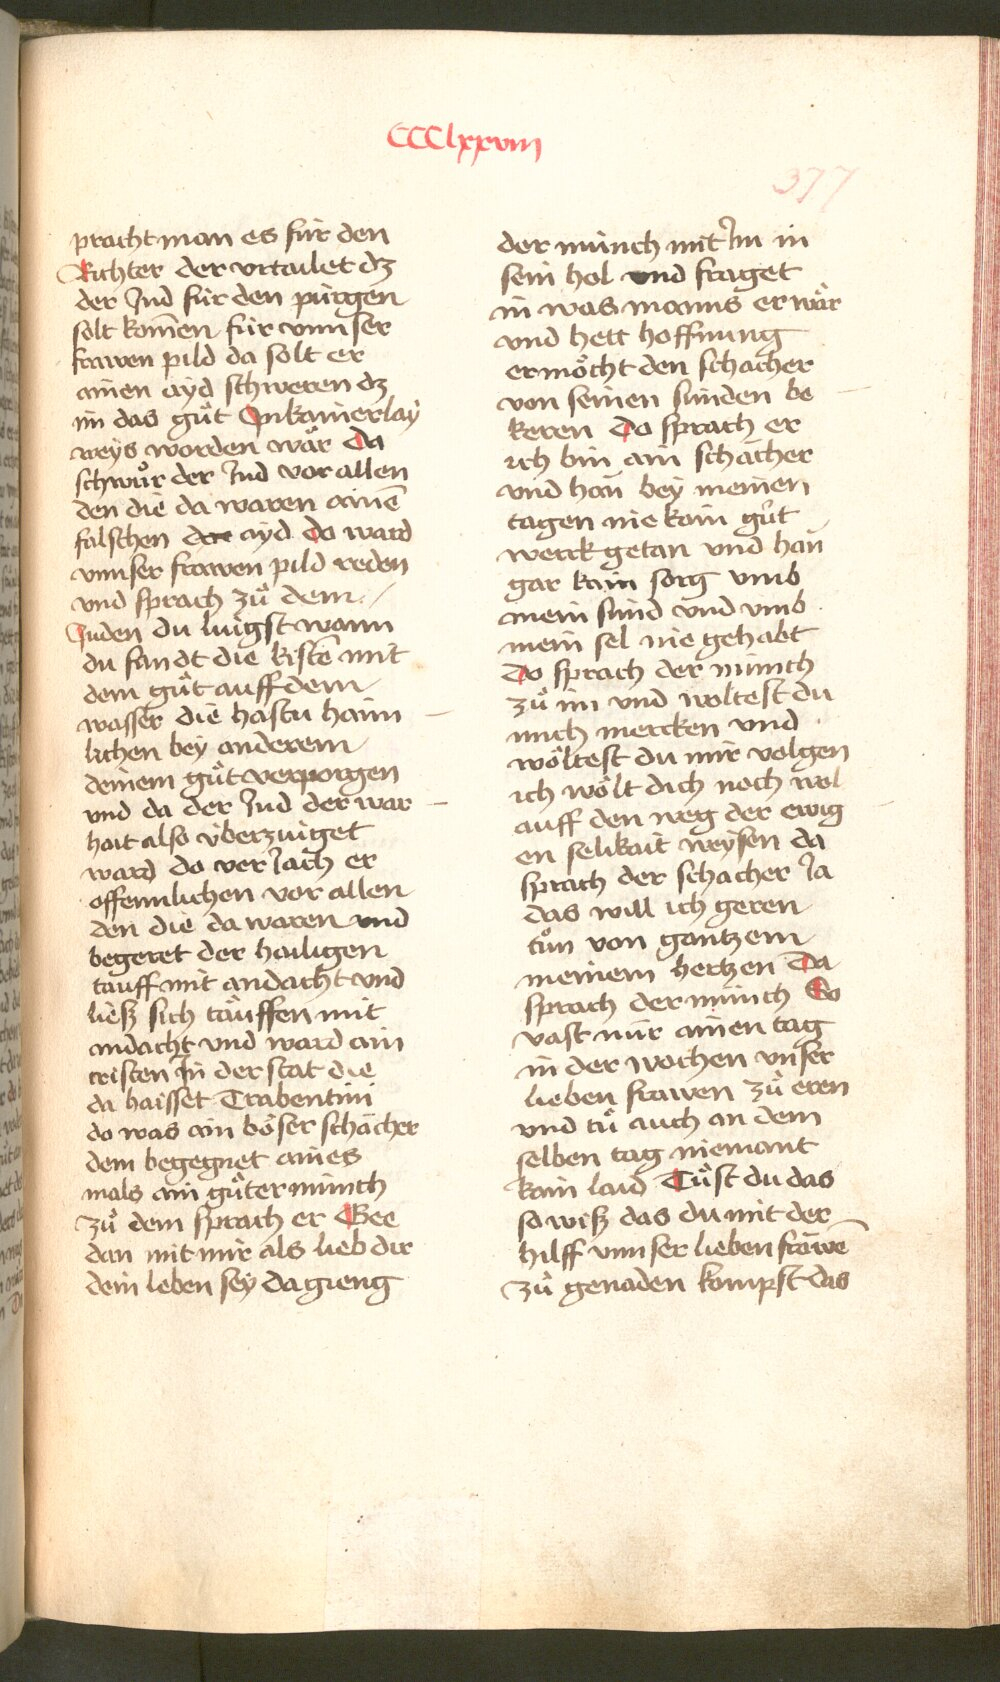 CCClxxviii
377
pracht man es für den
Richter der vrtailet dz
der Jud für den pürgen
solt kom̄en für vnnser
frawen pild da solt er
ainen ayd schweren dz
im das gůt In kainerlay
weys worden wär Da
schwůr der Jud vor allen
den die da waren ainē
falschen ayd Do ward
vnnser frawen pild reden
vnd sprach zů dem
Juden du luigst wann
du fandt die kisten mit
dem gůt auff dem
wasser die hastu haim
lichen bey anderem
deinem gůt verporgen
vnd da der Jud der war
hait also überzuiget
ward do ver Jach er
offennlichen vor allen
den die da waren vnd
begeret der hailigen
tauff mit andacht vnd
ließ sich täuffen mit
andacht vnd ward ain
cristen In der stat die
da haisset Trabentini
do was ain böser schächer
dem begegnet aines
mals ain gůter münch
zů dem sprach er Gee
dan mit mir als lieb dir
dein leben sey da gieng
der münch mit Im in
sein hol vnd fraget
in was manns er wär
vnd hett hoffnung
er möcht den schacher
von seinen sünden be
keren Do sprach er
ich bin ain schächer
vnd han bey meinen
tagen nie kain gůt
werck getan vnd han
gar kain sorg vmb
mein sünd vnd vmb
mein sel nie gehabt
Do sprach der münch
zů im vnd woltest du
mich mercken vnd
wöltest du mir volgen
ich wölt dich noch wol
auff den weg der ewig
en selikait weysen da
sprach der schacher Ja
das will ich geren
tůn von gantzem
meinem hertzen Da
sprach der münch So
vast nür ainen tag
in der wochen vnser
lieben frawen zů eren
vnd tů auch an dem
selben tag niemant
kain laid Tůst du das
so wiß das du mit der
hilff vnnser lieben frawē
zů genaden kompst das